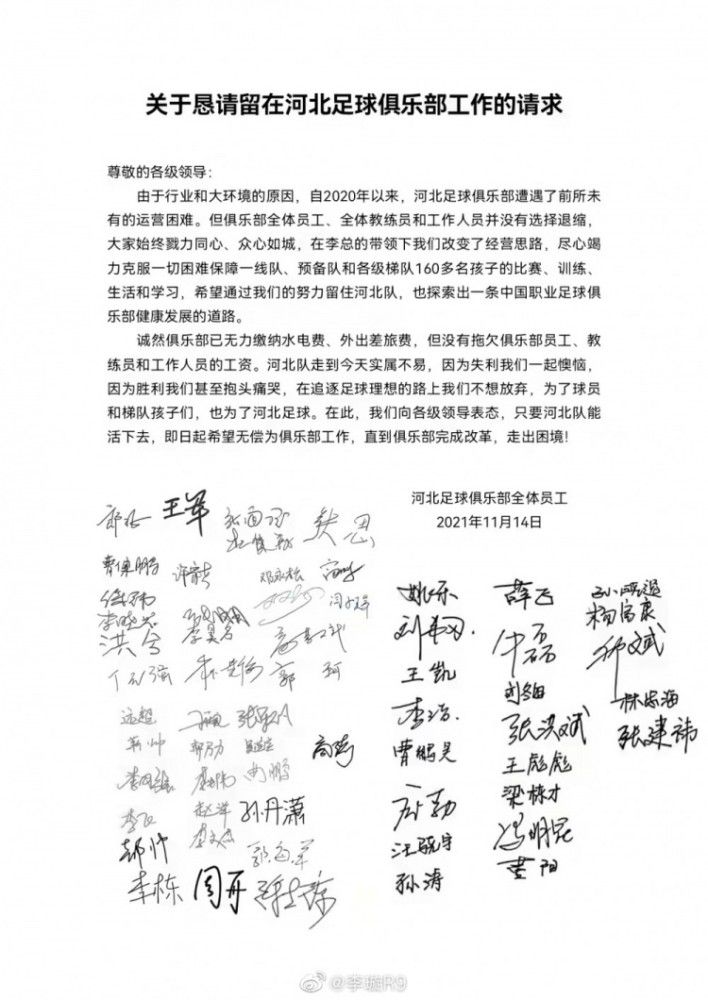 关于恳请留在河北足球俱乐部工作的请求
尊敬的各级领导：
由于行业和大环境的原因，自2020年以来，河北足球俱乐部遭遇了前所未
有的运营困难。但俱乐部全体员工、全体教练员和工作人员并没有选择退缩，
大家始终戮力同心、众心如城，在李总的带领下我们改变了经营思路，尽心竭
力克服一切困难保障一线队、预备队和各级梯队160多名孩子的比赛、训练、
生活和学习，希望通过我们的努力留住河北队，也探索出一条中国职业足球俱
乐部健康发展的道路。
诚然俱乐部已无力缴纳水电费、外出差旅费，但没有拖欠俱乐部员工、教
练员和工作人员的工资。河北队走到今天实属不易，因为失利我们一起懊恼，
因为胜利我们甚至抱头痛哭，在追逐足球理想的路上我们不想放弃，为了球员
和梯队孩子们，也为了河北足球。在此，我们向各级领导表态，只要河北队能
活下去，即日起希望无偿为俱乐部工作，直到俱乐部完成改革，走出困境！
河北足球俱乐部全体员工
2021年11月14日
王军
曹保鹏
洪兮
郭珂
远超
高莹
曲鹏
孙丹潇
郝帅
李栋 周开
姚乐
王凯
李浩
曹鹏昊
汪晓宇
孙涛
薛飞
牛磊
张洪斌
王彪彪
梁栋才
冯明昆
董阳
杨富康
林忠海
张建祎
@李璇R9